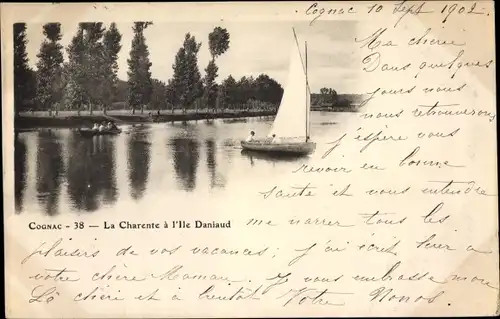 Cognac 10 Sept 1902
Ma chérie
Dans quelques
jours nous nous
nous retrouverons
j'espère vous
revoir en bonne
santé et vous entendre
me narrer tous les
COGNAC - 38 — La Charente à l'Ile Daniaud
plaisirs de vos vacances; j'ai écrit hier à
votre chère Maman. Je vous embrasse mon
chérie et à bientôt Votre Nonos.